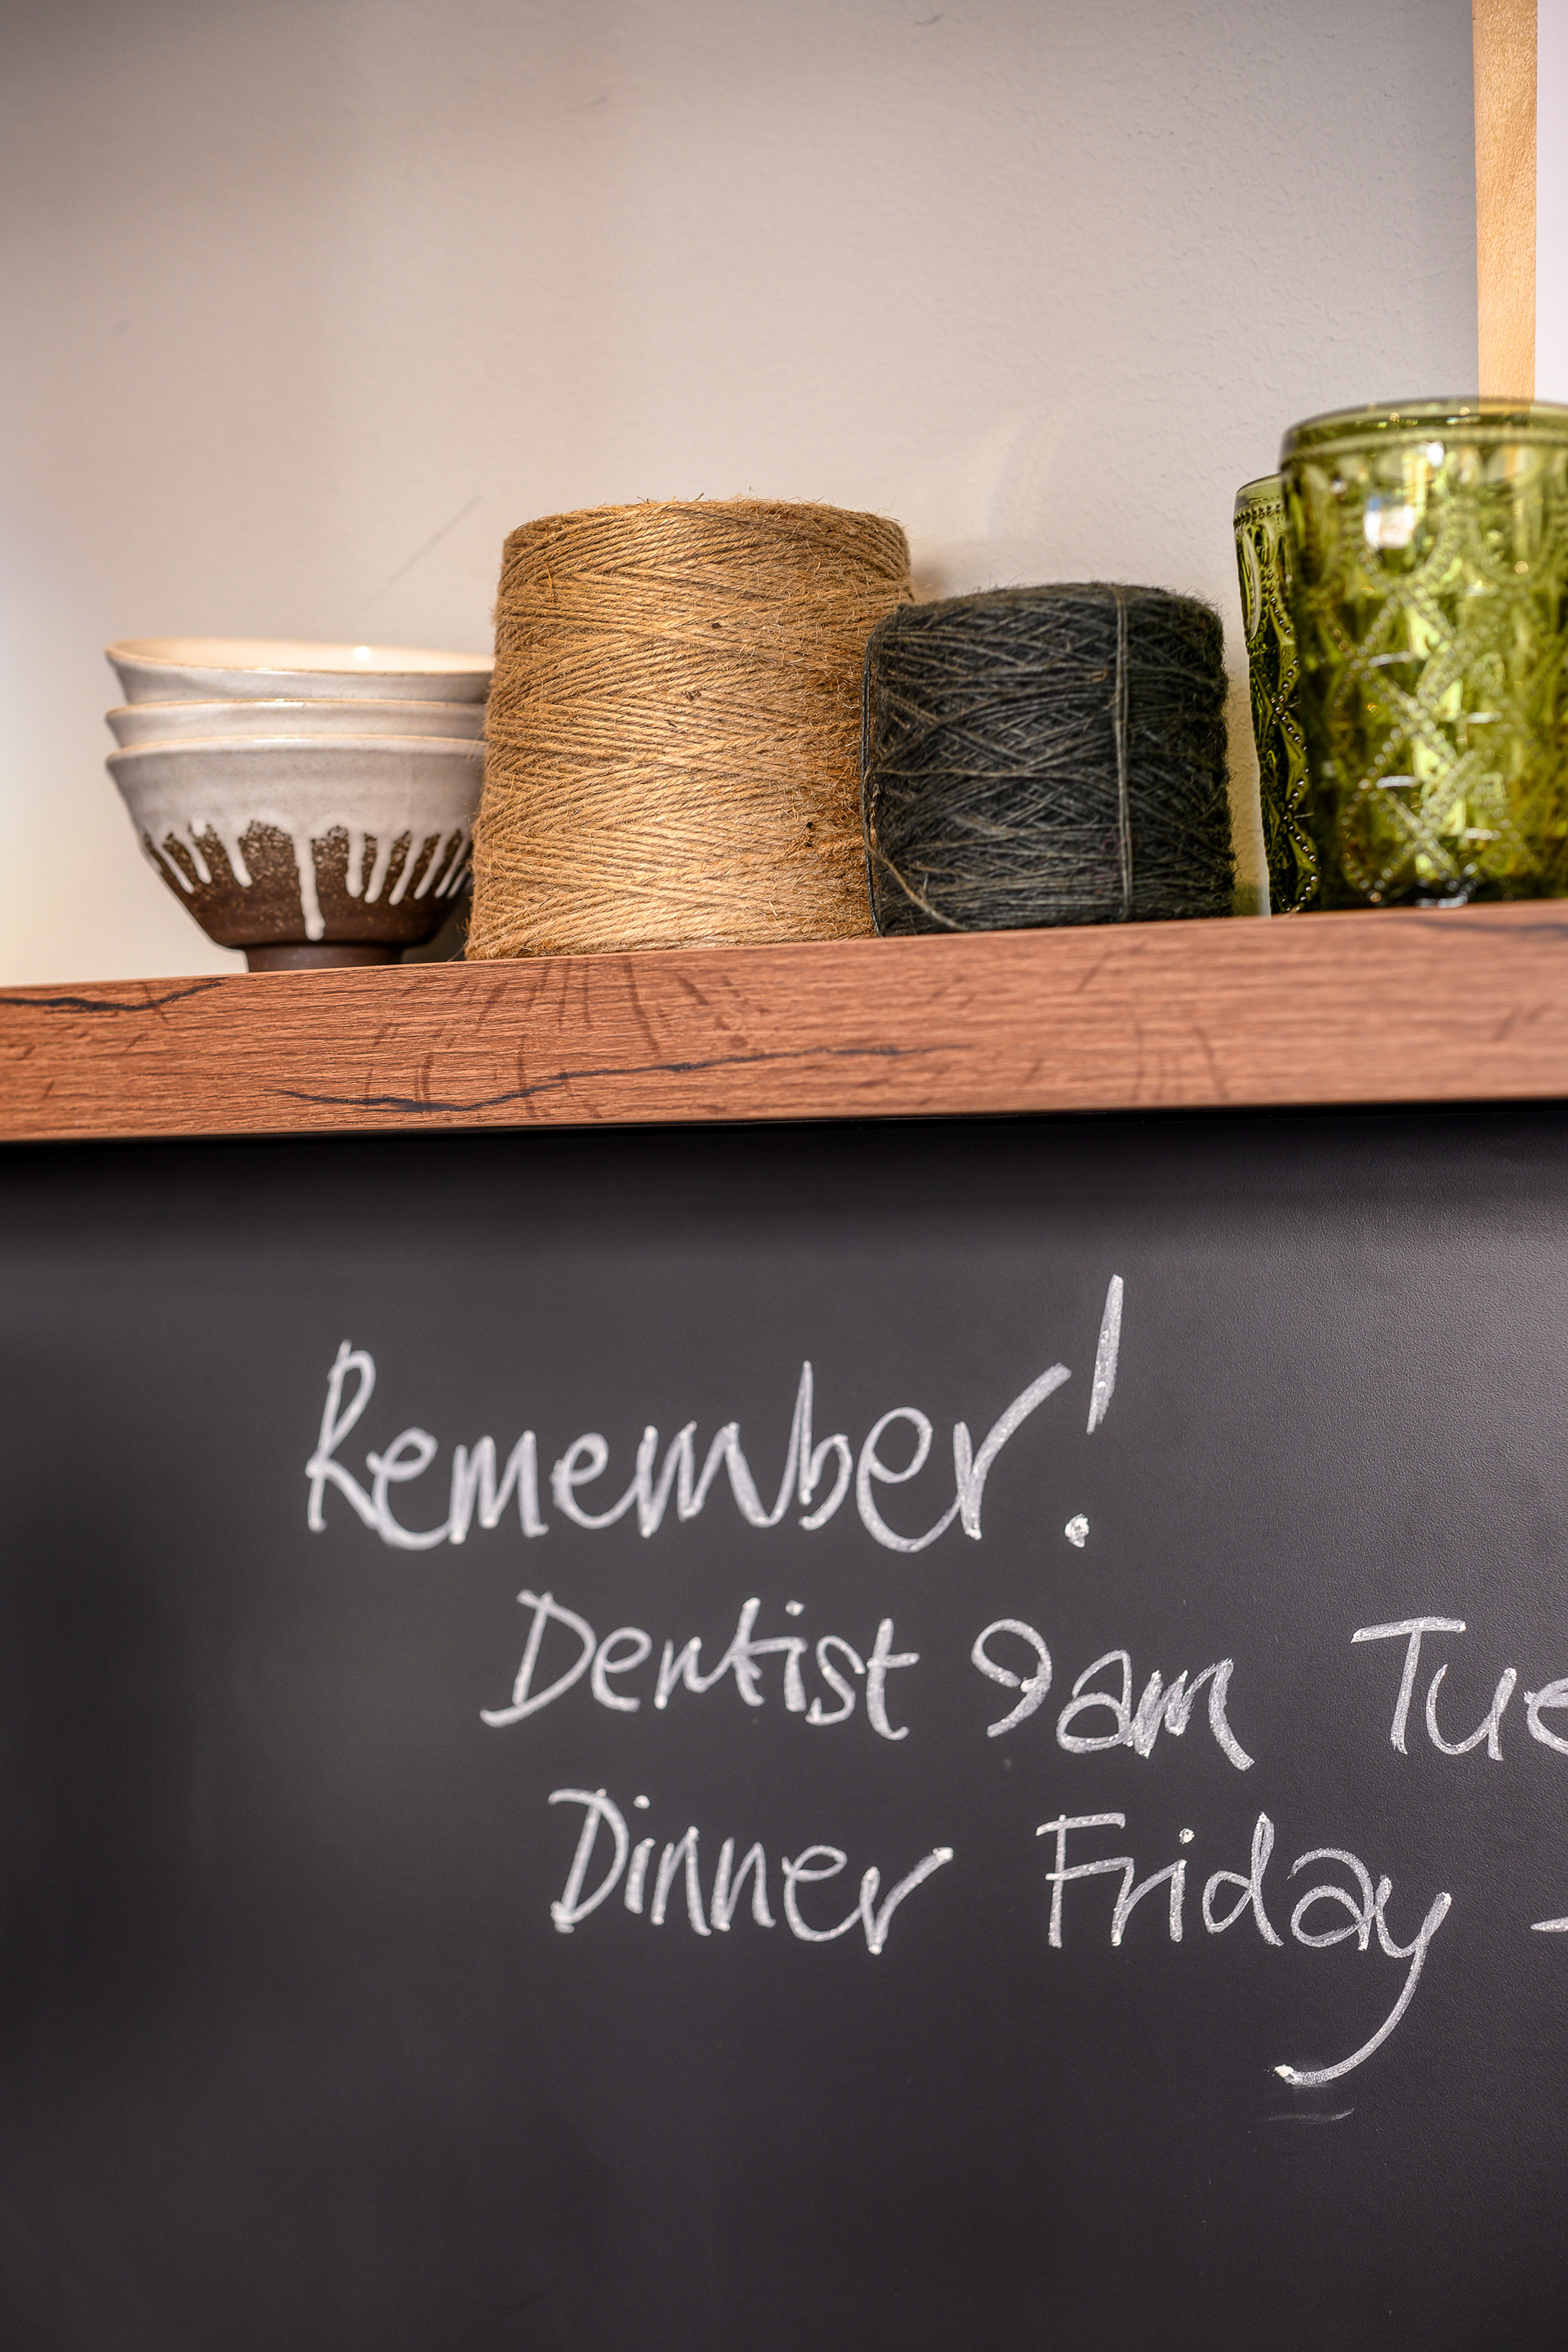 Remember!
Dentist 9am Tue
Dinner Friday -